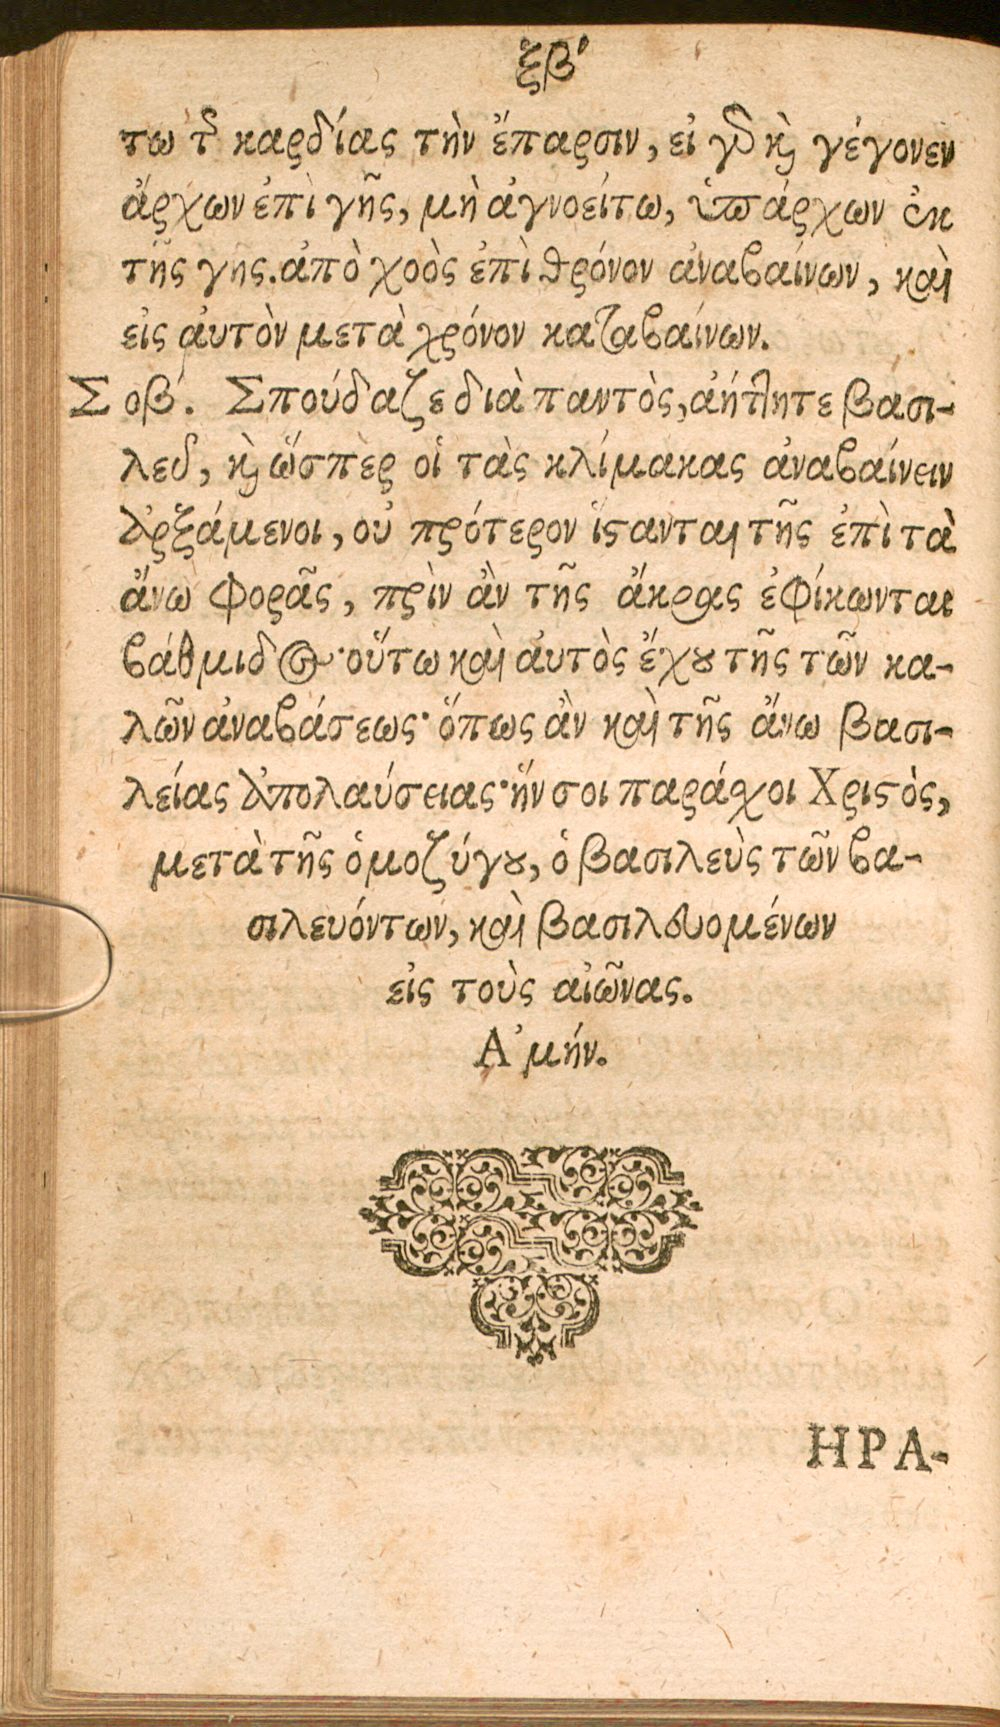 ξβʹ
τω τ̃ καρδίας τὴν ἔπαρσιν, εἰ γὰρ ϗ̀ γέγονεν
ἄρχων ἐπὶ γῆς, μὴ ἀγνοείτω, ὑπάρχων ἐκ
τῆς γῆς. ἀπὸ χοὸς ἐπὶ θρόνον ἀναβαίνων, καὶ
εἰς αὐτὸν μετὰ χρόνον καταβαίνων.
Σ οβ'. Σπούδαζε διὰ παντὸς, ἀήττητε βασι-
λεῦ, ϗ̀ ὥσπὲρ οἱ τὰς κλίμακας ἀναβαίνειν
ἀρξάμενοι, οὐ πρότερον ἵστανται τῆς ἐπὶ τὰ
ἄνω φορᾶς, πρὶν ἂν τῆς ἄκρας ἐφίκωνται
βάθμιδος· οὕτω καὶ αὐτὸς ἔχου τῆς τῶν κα-
λῶν ἀναβάσεως· ὅπως ἂν καὶ τῆς ἄνω βασι-
λείας ἀπολαύσειας· ἥν σοι παράχοι Χριστὸς,
μετὰ τῆς ὁμοζύγου, ὁ βασιλεὺς τῶν βα-
σιλευόντων, καὶ βασιλευομένων
εἰς τοὺς αἰῶνας.
Ἀμήν.
ΗΡΑ-